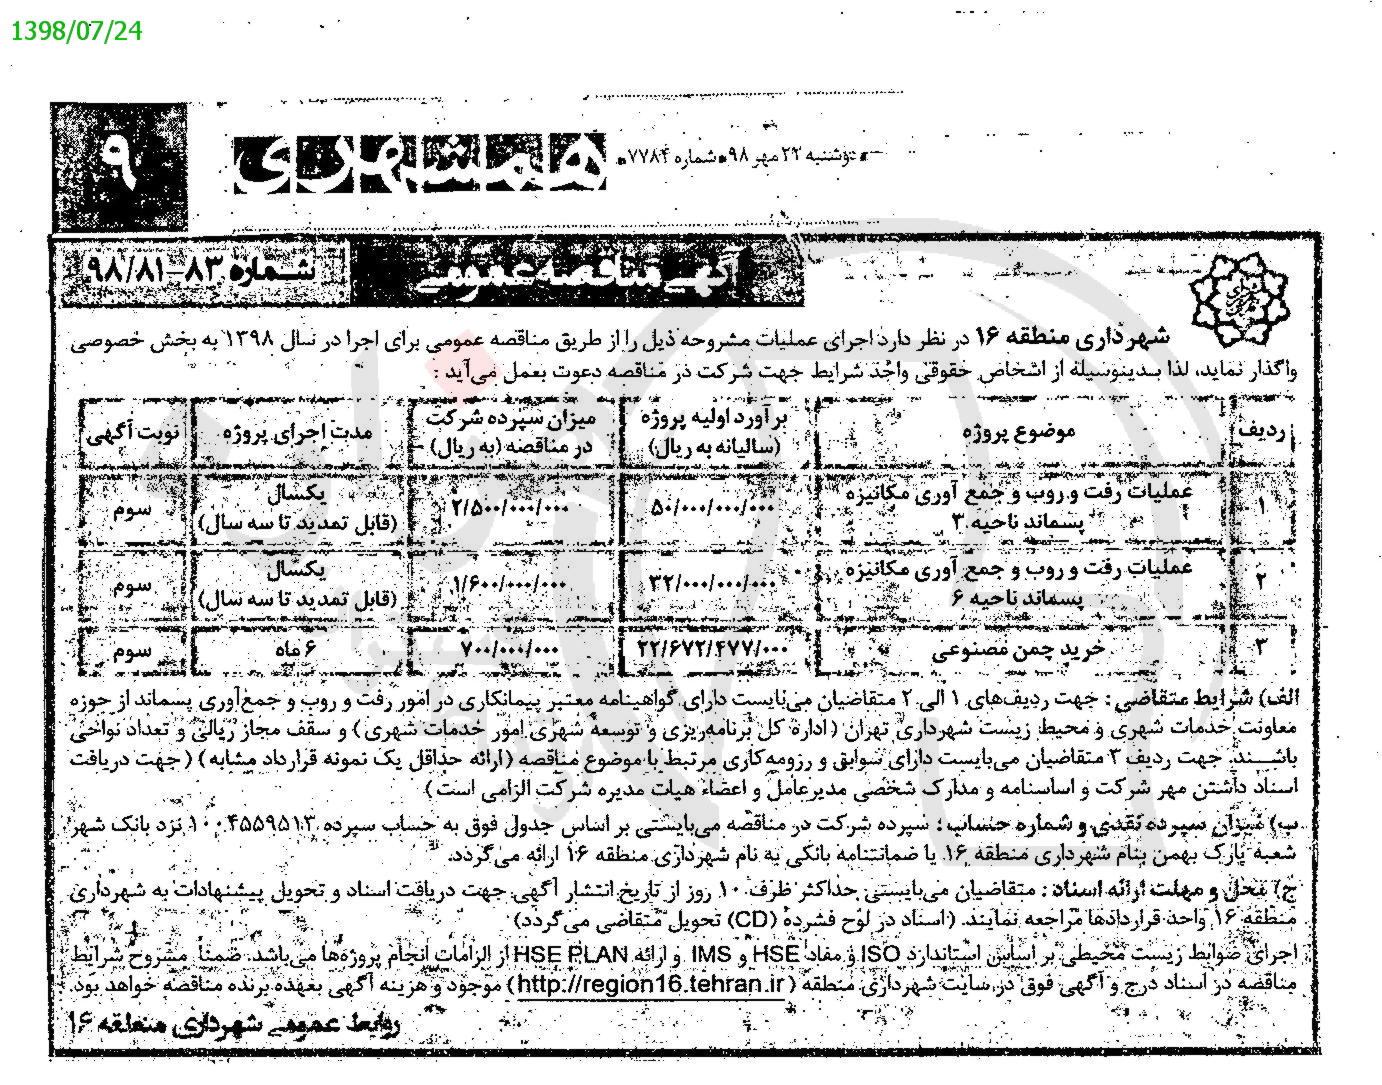 1398/07/24
۹
همشهری
دوشنبه ۲۲ مهر ۹۸ شماره ۷۷۸۴
آگهی مناقصه عمومی
شماره ۸۳-۹۸/۸۱
شهرداری منطقه ۱۶ در نظر دارد اجرای عملیات مشروحه ذیل را از طریق مناقصه عمومی برای اجرا در سال ۱۳۹۸ به بخش خصوصی
واگذار نماید، لذا بدینوسیله از اشخاص حقوقی واجد شرایط جهت شرکت در مناقصه دعوت بعمل می‌آید :
ردیف موضوع پروژه برآورد اولیه پروژه (سالیانه به ریال) میزان سپرده شرکت در مناقصه (به ریال) مدت اجرای پروژه نوبت آگهی
۱ عملیات رفت و روب و جمع آوری مکانیزه پسماند ناحیه ۳ ۵۰/۰۰۰/۰۰۰/۰۰۰ ۲/۵۰۰/۰۰۰/۰۰۰ یکسال (قابل تمدید تا سه سال) سوم
۲ عملیات رفت و روب و جمع آوری مکانیزه پسماند ناحیه ۶ ۳۲/۰۰۰/۰۰۰/۰۰۰ ۱/۶۰۰/۰۰۰/۰۰۰ یکسال (قابل تمدید تا سه سال) سوم
۳ خرید چمن مصنوعی ۲۲/۶۷۲/۴۷۷/۰۰۰ ۷۰۰/۰۰۰/۰۰۰ ۶ ماه سوم
الف) شرایط متقاضی : جهت ردیف‌های ۱ الی ۲ متقاضیان می‌بایست دارای گواهینامه معتبر پیمانکاری در امور رفت و روب و جمع‌آوری پسماند از حوزه
معاونت خدمات شهری و محیط زیست شهرداری تهران (اداره کل برنامه‌ریزی و توسعه شهری امور خدمات شهری) و سقف مجاز ریالی و تعداد نواحی
باشند. جهت ردیف ۳ متقاضیان می‌بایست دارای سوابق و رزومه کاری مرتبط با موضوع مناقصه (ارائه حداقل یک نمونه قرارداد مشابه) (جهت دریافت
اسناد داشتن مهر شرکت و اساسنامه و مدارک شخصی مدیرعامل و اعضاء هیات مدیره شرکت الزامی است)
ب) میزان سپرده نقدی و شماره حساب : سپرده شرکت در مناقصه می‌بایستی بر اساس جدول فوق به حساب سپرده ۱۰۰۴۵۵۹۵۱۳ نزد بانک شهر
شعبه پارک بهمن بنام شهرداری منطقه ۱۶ یا ضمانتنامه بانکی به نام شهرداری منطقه ۱۶ ارائه می‌گردد.
ج) محل و مهلت ارائه اسناد : متقاضیان می‌بایستی حداکثر ظرف ۱۰ روز از تاریخ انتشار آگهی جهت دریافت اسناد و تحویل پیشنهادات به شهرداری
منطقه ۱۶ واحد قراردادها مراجعه نمایند. (اسناد در لوح فشرده (CD) تحویل متقاضی می گردد)
اجرای ضوابط زیست محیطی بر اساس استاندارد ISO و مفاد HSE و IMS و ارائه HSE PLAN از الزامات انجام پروژه‌ها می‌باشد. ضمناً مشروح شرایط
مناقصه در اسناد درج و آگهی فوق در سایت شهرداری منطقه (http://region16.tehran.ir) موجود و هزینه آگهی بعهده برنده مناقصه خواهد بود.
روابط عمومی شهرداری منطقه ۱۶